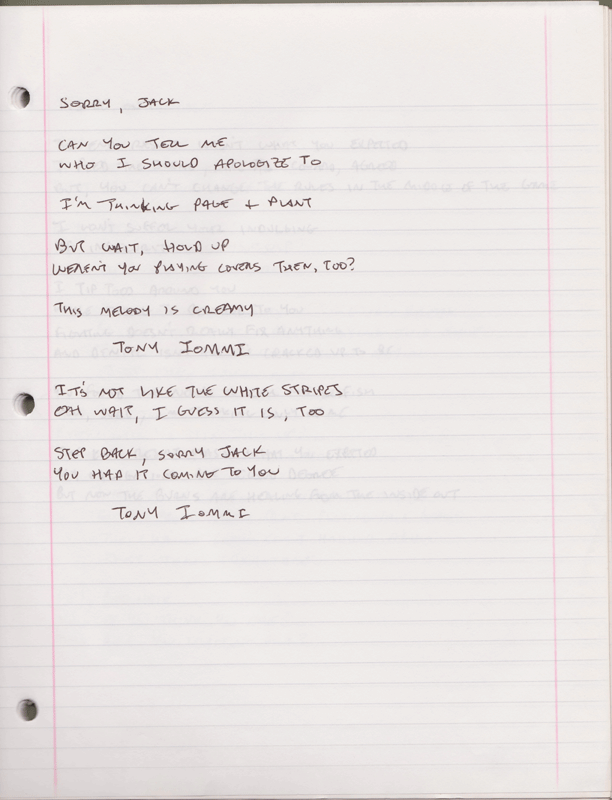 SORRY, JACK
CAN YOU TELL ME
WHO I SHOULD APOLOGIZE TO
I'M THINKING PAGE + PLANT
BUT WAIT, HOLD UP
WEREN'T YOU PLAYING COVERS THEN, TOO?
THIS MELODY IS CREAMY
TONY IOMMI
IT'S NOT LIKE THE WHITE STRIPES
OH WAIT, I GUESS IT IS, TOO
STEP BACK, SORRY JACK
YOU HAD IT COMING TO YOU
TONY IOMMI